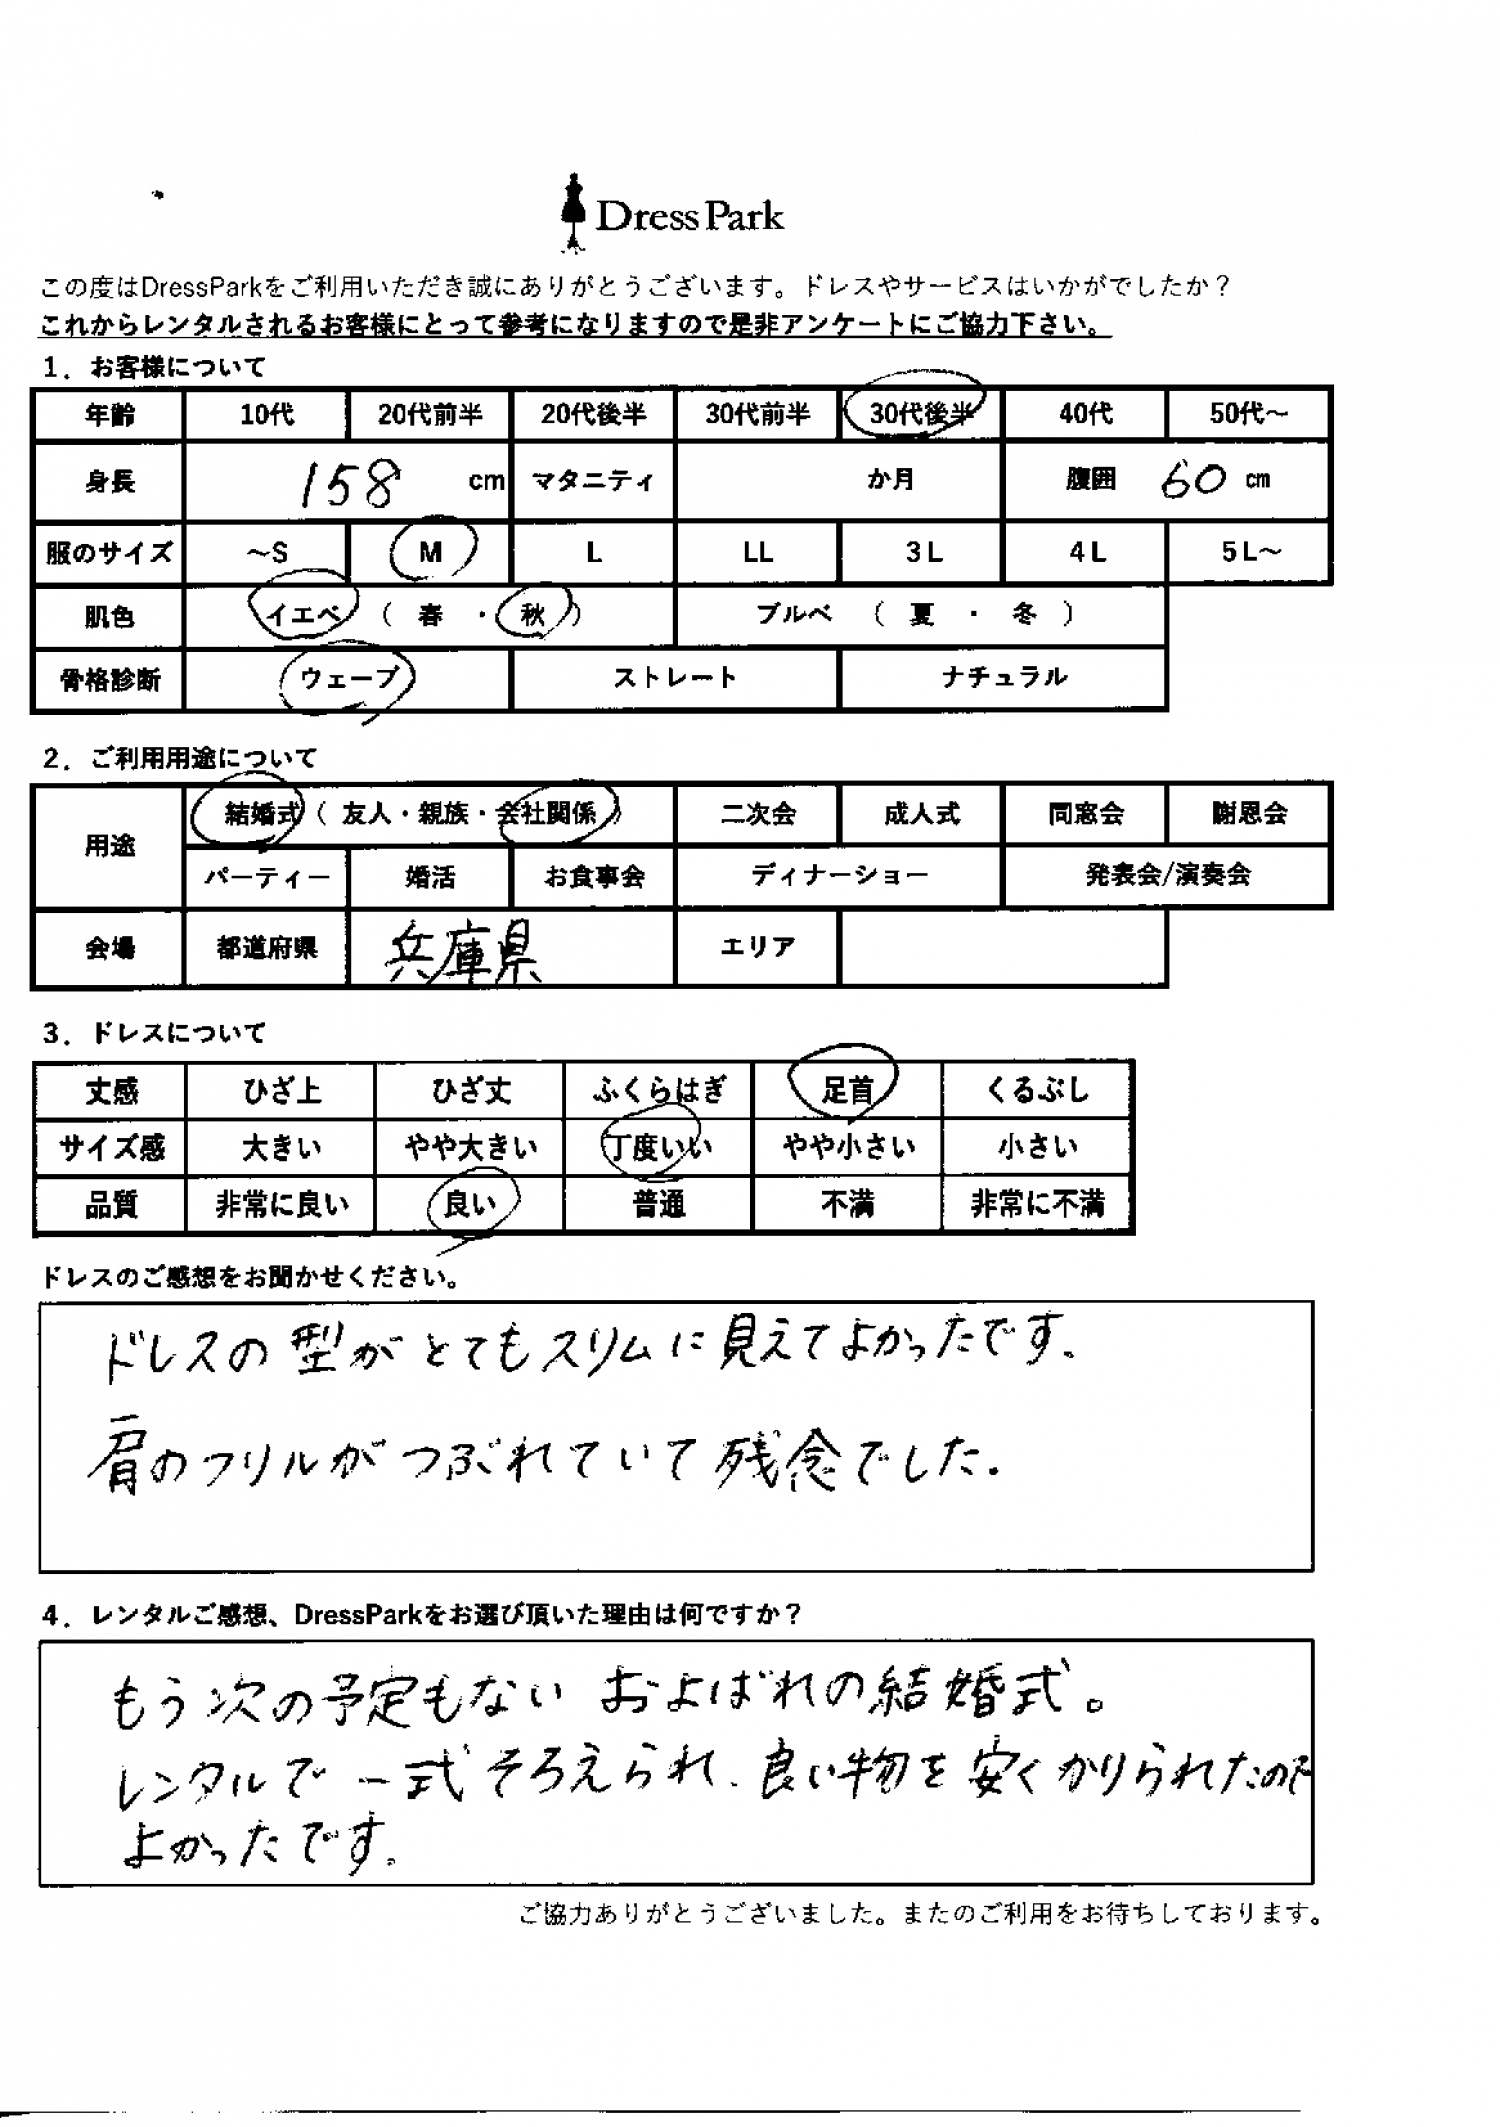 DressPark
この度はDressParkをご利用いただき誠にありがとうございます。ドレスやサービスはいかがでしたか？
これからレンタルされるお客様にとって参考になりますので是非アンケートにご協力下さい。
1．お客様について
年齢 10代 20代前半 20代後半 30代前半 30代後半 40代 50代～
身長 158 cm マタニティ か月 腹囲 60 cm
服のサイズ ～S M L LL 3L 4L 5L～
肌色 イエベ （ 春 ・ 秋 ） ブルベ （ 夏 ・ 冬 ）
骨格診断 ウェーブ ストレート ナチュラル
2．ご利用用途について
用途 結婚式（ 友人・親族・会社関係 ） 二次会 成人式 同窓会 謝恩会
パーティー 婚活 お食事会 ディナーショー 発表会/演奏会
会場 都道府県 兵庫県 エリア
3．ドレスについて
丈感 ひざ上 ひざ丈 ふくらはぎ 足首 くるぶし
サイズ感 大きい やや大きい 丁度いい やや小さい 小さい
品質 非常に良い 良い 普通 不満 非常に不満
ドレスのご感想をお聞かせください。
ドレスの型がとてもスリムに見えてよかったです.
肩のフリルがつぶれていて残念でした.
4．レンタルご感想、DressParkをお選び頂いた理由は何ですか？
もう次の予定もない およばれの結婚式。
レンタルで一式そろえられ、良い物を安くかりられたので
よかったです.
ご協力ありがとうございました。またのご利用をお待ちしております。